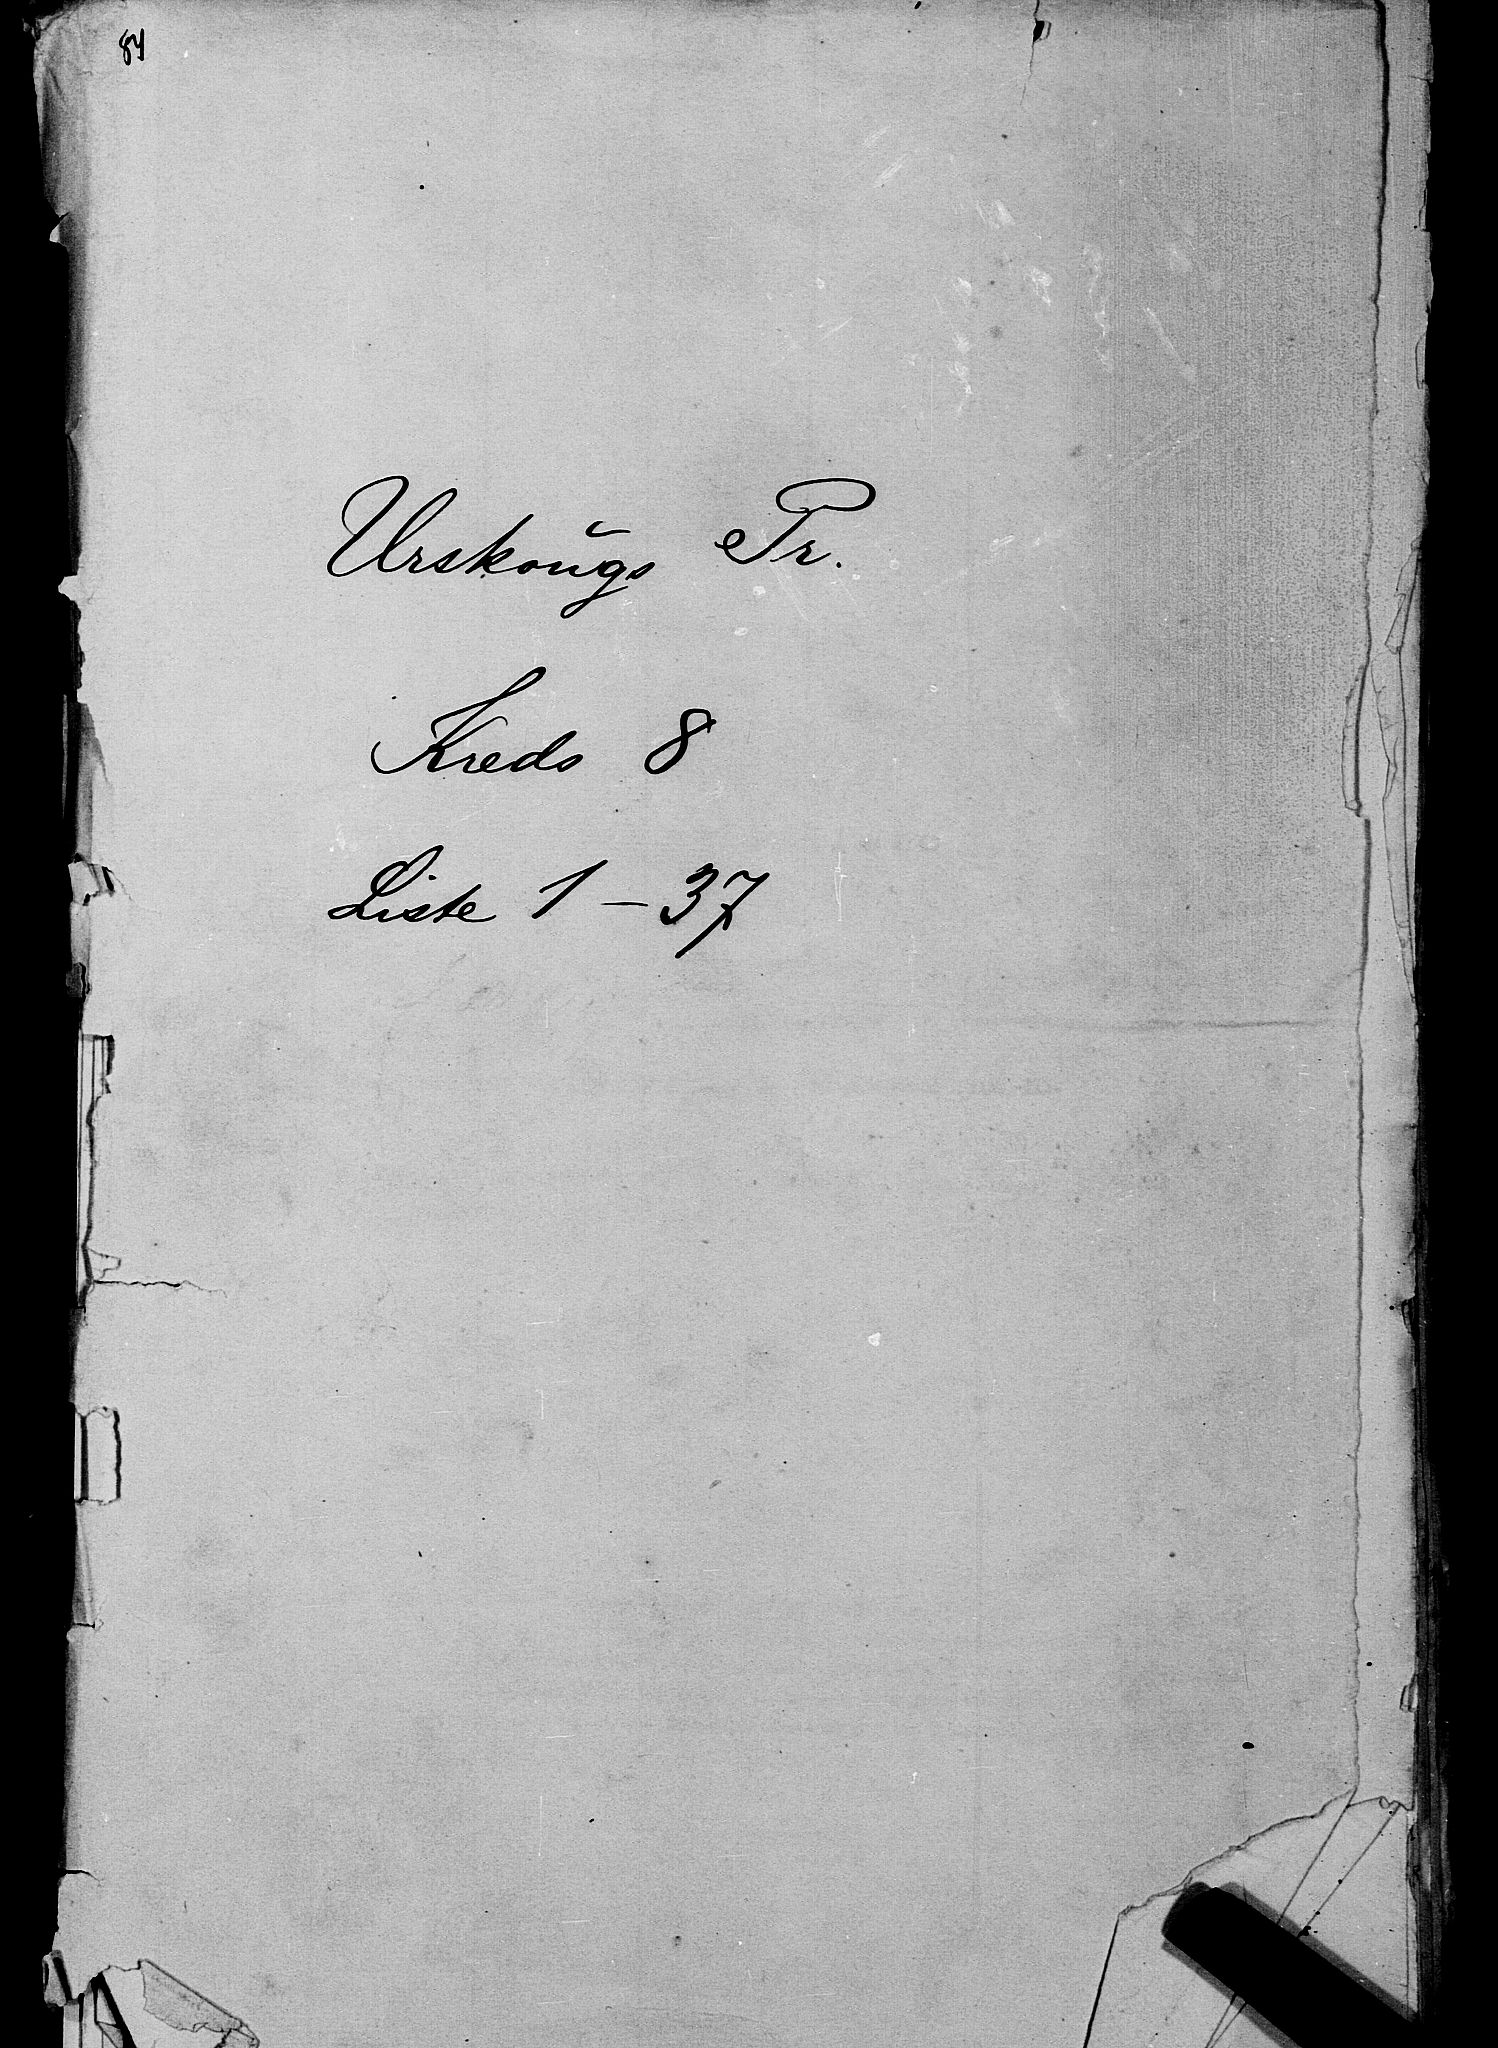 84
Urskougs Pr.
Kreds 8
Liste 1 – 37